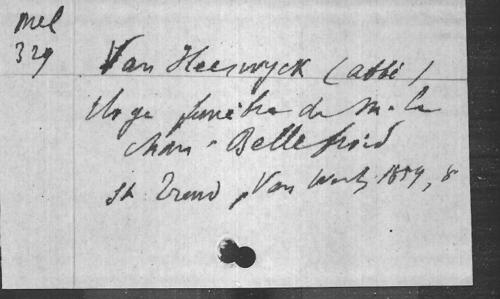 Mel
329
Van Heeswyck (abbé)
Eloge funèbre de M. le
chan. Bellefroid
St Trond, Van West, 1859, 8°